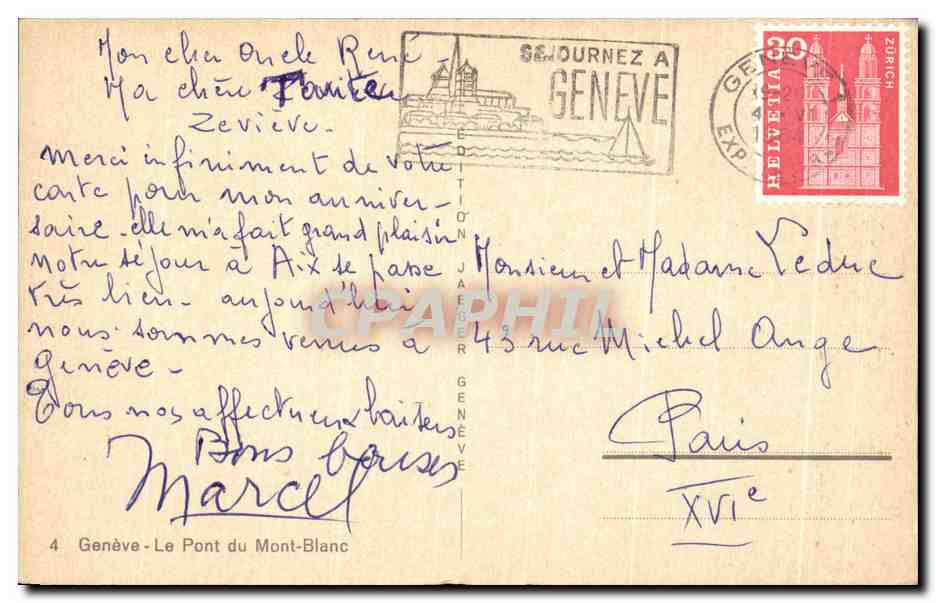 Mon cher oncle René
Ma chère
merci infiniment de votre
carte pour mon anniver-
saire - elle m'a fait grand plaisir
notre séjour à Aix se passe
très bien - aujourd'hui
nous sommes venus à
Genève -
Tous nos affectueux baisers
Bons
Marcel
4 Genève - Le Pont du Mont-Blanc
EDITION JAEGER GENÈVE
SÉJOURNEZ A
GENÈVE
GENEVE
EXP
30
HELVETIA
ZÜRICH
Monsieur et Madame Leduc
43 rue Michel Ange
Paris
XVIe
CPAPHIL